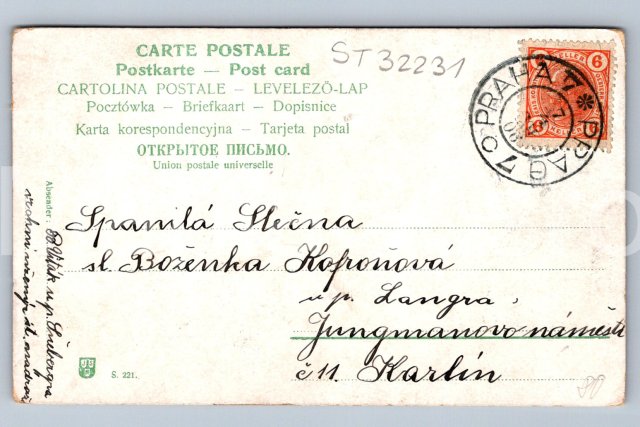 CARTE POSTALE
Postkarte — Post card
CARTOLINA POSTALE – LEVELEZŐ-LAP
Pocztówka – Briefkaart – Dopisnice
Karta korespondencyjna – Tarjeta postal
ОТКРЫТОЕ ПИСЬМО.
Union postale universelle
ST 32231
HELLER
6
PRAHA 7 * PRAG 7
Absender:
Spanilá Slečna
sl. Boženka Kofroňová
u p. Langra
Jungmanovo náměstí
č 11. Karlín
S. 221.